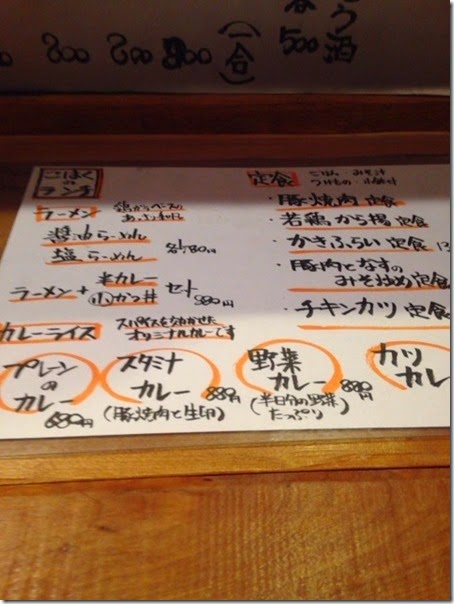 う酒
500
(一合)
こはくの
ランチ
ラーメン
鶏がらベースの
醤油らーめん
塩らーめん
各780円
ラーメン+
半カレー
小かつ丼
セット
880円
カレーライス
スパイスを効かせた
オリジナルカレーです
プレーン
の
カレー
680円
スタミナ
カレー
880円
(豚焼肉と生卵)
野菜
カレー
880円
(半日分の野菜
たっぷり)
カツ
カレ
定食
ごはん・みそ汁
つけもの・小鉢付
・豚焼肉定食
・若鶏から揚定食
・かきふらい定食
・豚肉となすの
みそ炒め定食
・チキンカツ定食